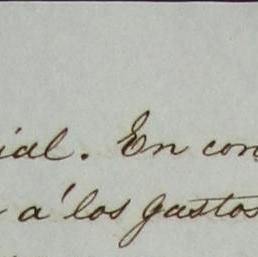 ial. En con
a' los gastos